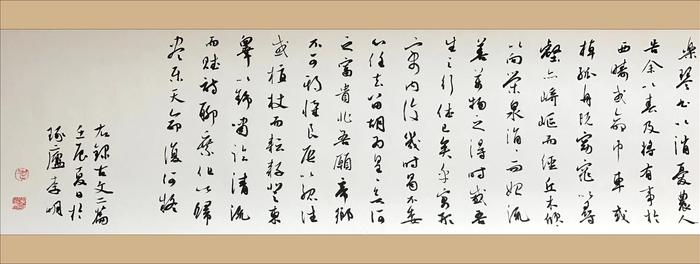 樂琴書以消憂農人
告余以春及將有事於
西疇或命巾車或
棹孤舟既窈窕以尋
壑亦崎嶇而經丘木欣
以向榮泉涓而始流
善萬物之得時感吾
生之行休已矣乎寓形
宇內復幾時曷不委
心任去留胡為遑欲何
之富貴非吾願帝鄉
不可期懷良辰以孤往
或植杖而耘耔登東
皋以舒嘯臨清流
而賦詩聊乘化以歸
盡樂夫天命復奚疑
右錄古文二篇
壬辰夏日於
琢廬李明